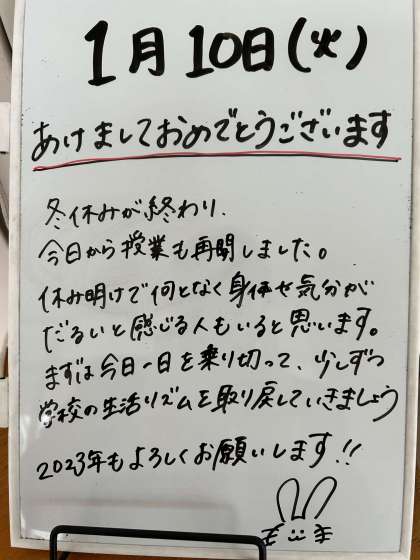 1月10日(火)
あけましておめでとうございます
冬休みが終わり、
今日から授業も再開しました。
休み明けで何となく身体や気分が
だるいと感じる人もいると思います。
まずは今日一日を乗り切って、少しずつ
学校の生活リズムを取り戻していきましょう
2023年もよろしくお願いします!!